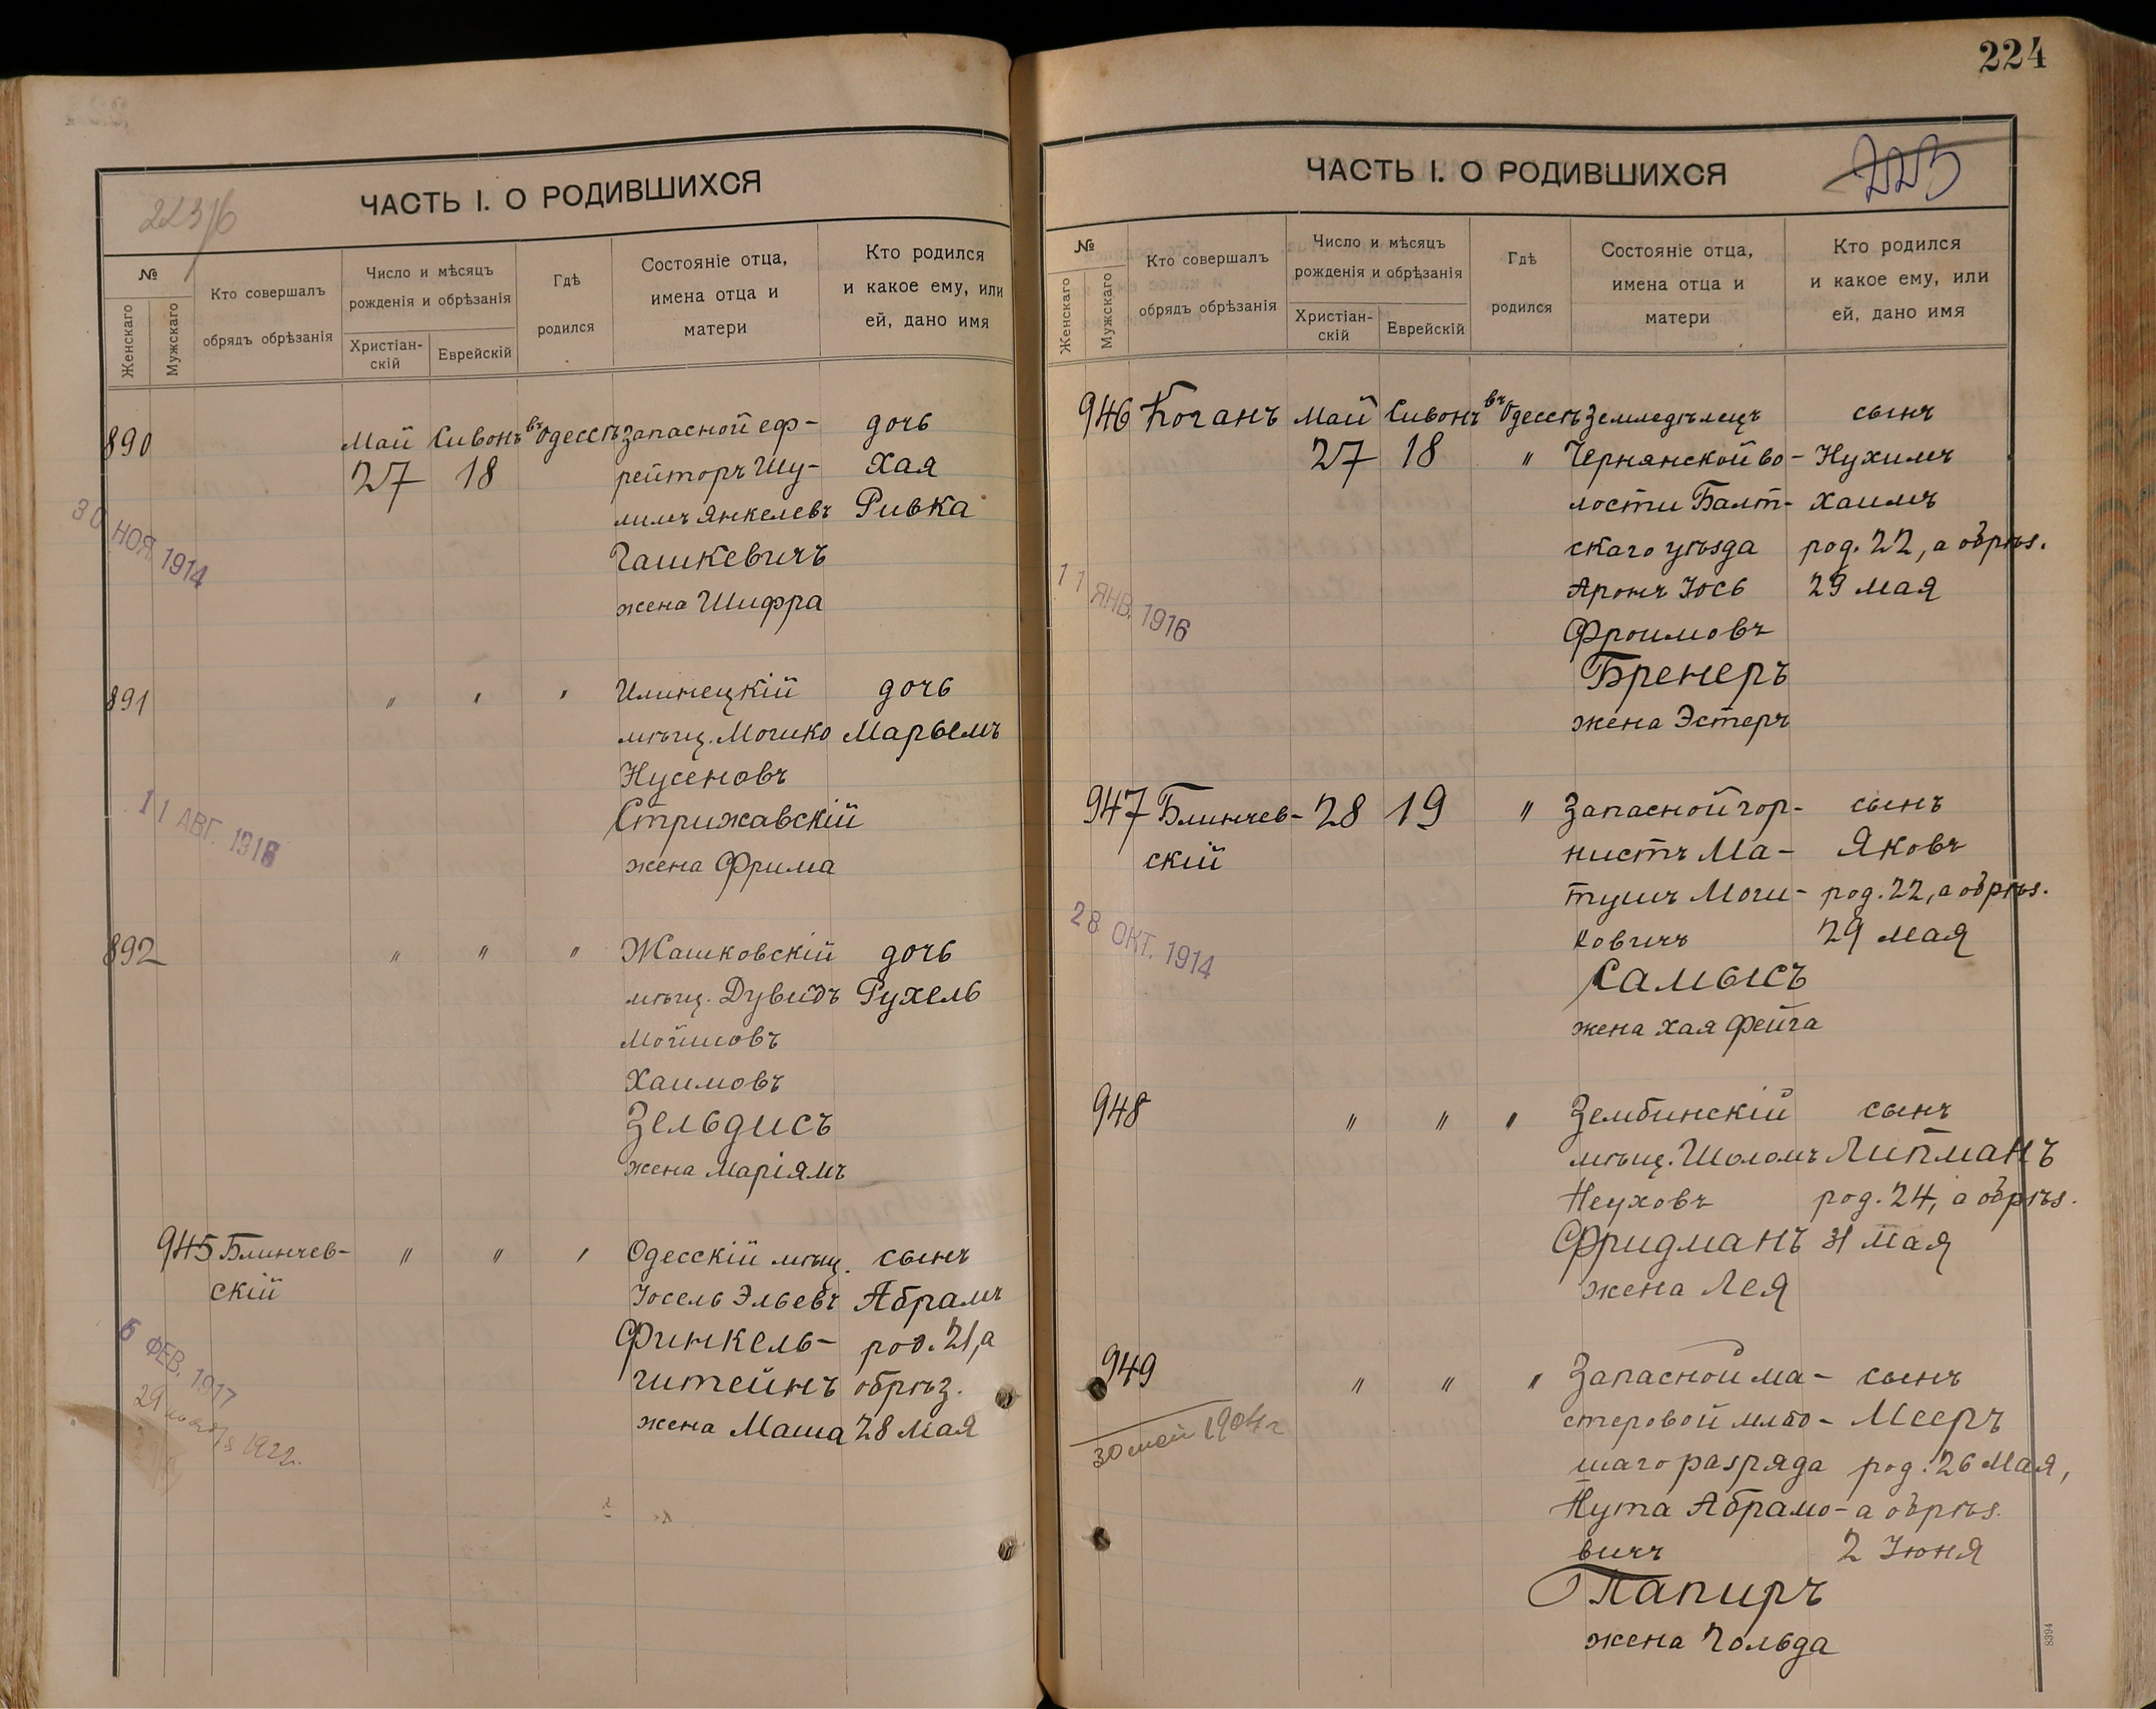 224
ЧАСТЬ I. О РОДИВШИХСЯ
223/б
№
Женскаго
Мужскаго
Кто совершалъ
обрядъ обрѣзанія
Число и мѣсяцъ
рожденія и обрѣзанія
Христіан-
скій
Еврейскій
Гдѣ
родился
Состояніе отца,
имена отца и
матери
Кто родился
и какое ему, или
ей, дано имя
890 Май Сивонъ въ Одессѣ запасной еф- дочь
27 18 рейторъ Шу- Хая
лимъ Янкелевъ Ривка
Гашкевичъ
жена Шифра
30 НОЯ. 1914
891 〃 〃 〃 Илинецкій дочь
мѣщ. Мошко Марьемъ
Нусеновъ
Стрижавскій
жена Фрима
11 АВГ. 1916
892 〃 〃 〃 Жашковскій дочь
мѣщ. Дувидъ Рухель
Мойшовъ
Хаимовъ
Зельдисъ
жена Маріямъ
945 Блинчев- 〃 〃 〃 Одесскій мѣщ. сынъ
скій Іосель Эльевъ Абрамъ
Финкель- род. 21, а
штейнъ обрѣз.
жена Маша 28 Мая
5 ФЕВ. 1917
1922.
ЧАСТЬ I. О РОДИВШИХСЯ
223
№
Женскаго
Мужскаго
Кто совершалъ
обрядъ обрѣзанія
Число и мѣсяцъ
рожденія и обрѣзанія
Христіан-
скій
Еврейскій
Гдѣ
родился
Состояніе отца,
имена отца и
матери
Кто родился
и какое ему, или
ей, дано имя
946 Коганъ Май Сивонъ въ Одессѣ Земледѣлецъ сынъ
27 18 〃 Чернянской во- Нухимъ
лости Балт- Хаимъ
скаго уѣзда род. 22, а обрѣз.
Аронъ Іось 29 мая
Фроимовъ
Бренеръ
жена Эстеръ
11 ЯНВ. 1916
947 Блинчев- 28 19 〃 Запасной гор- сынъ
скій нистъ Ма- Яковъ
тушъ Мош- род. 22, а обрѣз.
ковичъ 29 мая
Самысъ
жена Хая Фейга
28 ОКТ. 1914
948 〃 〃 〃 Зембинскій сынъ
мѣщ. Шоломъ Липманъ
Неуховъ род. 24, а обрѣз.
Фридманъ 31 мая
жена Лея
949 〃 〃 〃 Запасной ма- сынъ
стеровой млад- Мееръ
шаго разряда род. 26 Мая,
Нута Абрамо- а обрѣз.
вичъ 2 Іюня
Папиръ
жена Гольда
30 май 1904 г
8394